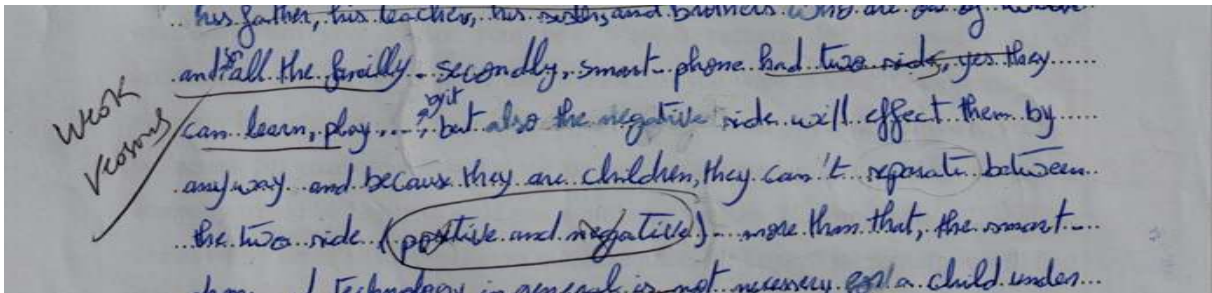 his father, his teacher, his sisters and brothers who are out of
and all the familly. secondly, smart phone had two side, yes they
Weak reasons
can learn, play, ..., by it but also the negative side will effect them by
any way and because they are children, they can't separate between
the two side (positive and negative). more than that, the smart
technology in general is not necessary for a child under